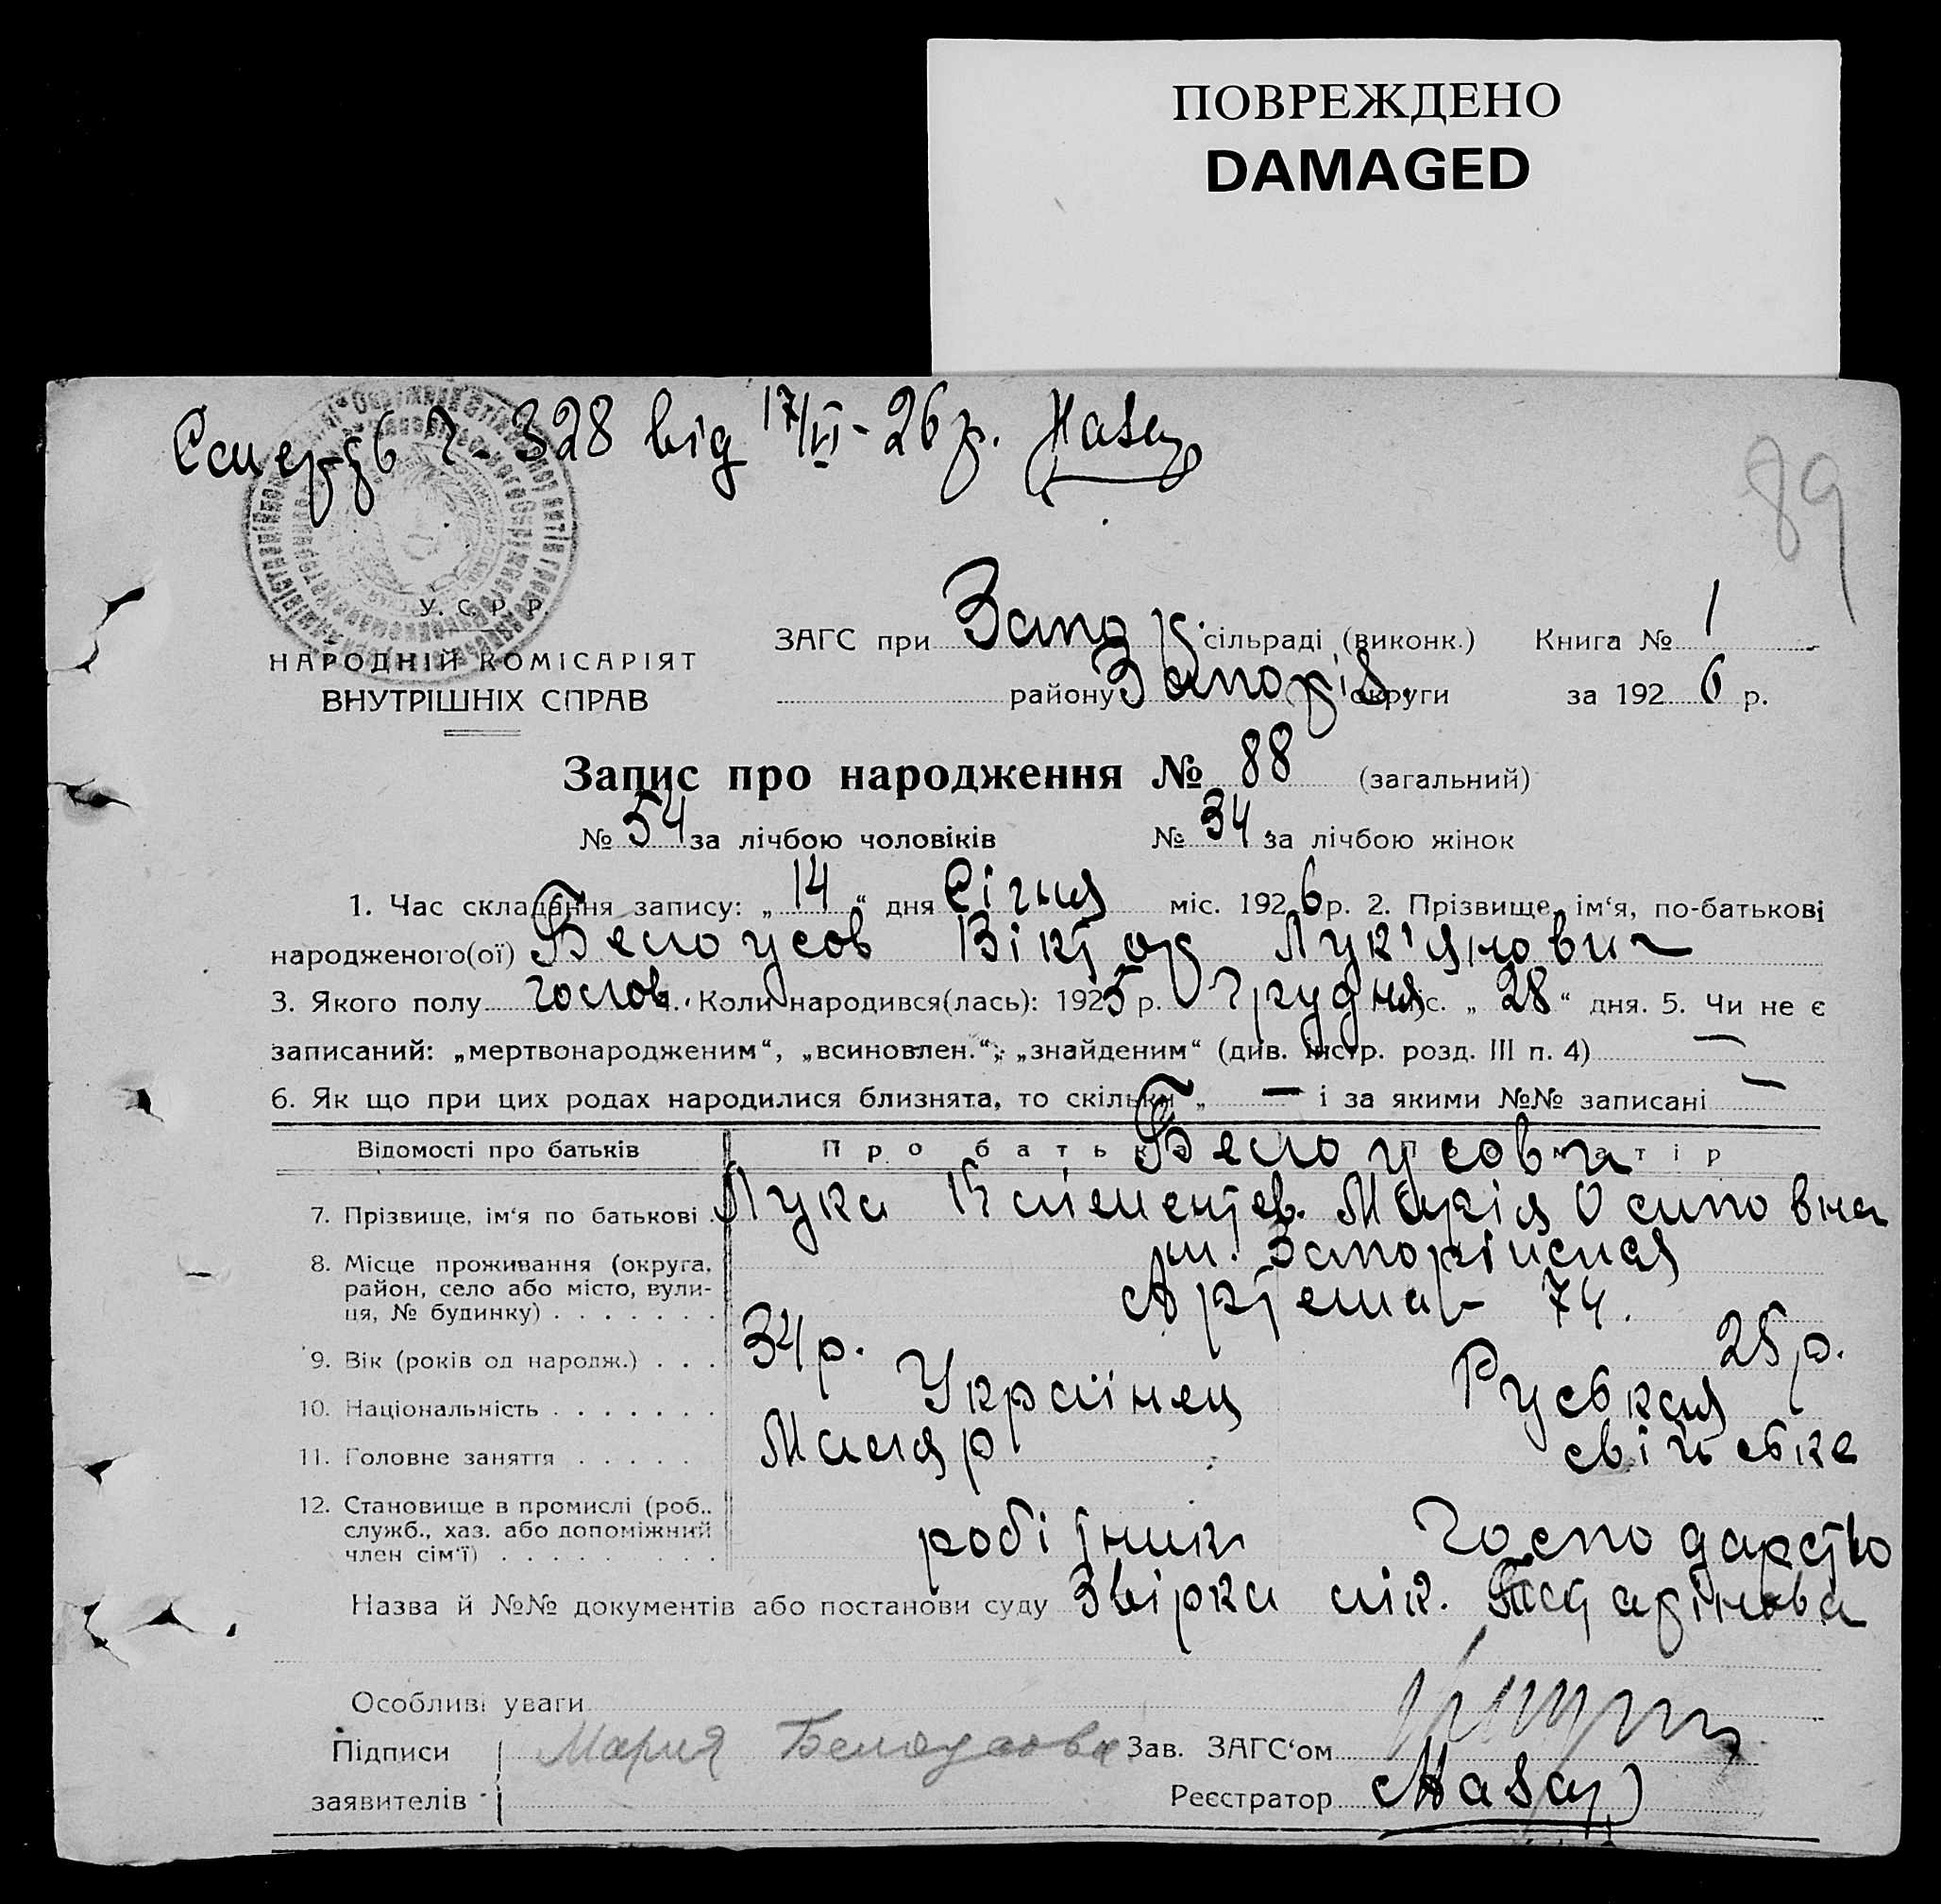 ПОВРЕЖДЕНО
DAMAGED
328 від 17/VI - 26 р.
89
У. С. Р. Р.
НАРОДНІЙ КОМІСАРІЯТ
ВНУТРІШНІХ СПРАВ
ЗАГС при Запор. сільраді (виконк.) Книга № 1
району Запоріз. округи за 1926 р.
Запис про народження № 88 (загальний)
№ 54 за лічбою чоловіків № 34 за лічбою жінок
1. Час складання запису: „ 14 “ дня Січня міс. 1926 р. 2. Прізвище, ім‘я, по-батькові
народженого(ої) Белоусов Віктор Лук'янович
3. Якого полу чолов. 4. Коли народився(лась): 1925 р. Грудня міс. „ 28 “ дня. 5. Чи не є
записаний: „мертвонародженим“, „всиновлен.“, „знайденим“ (див. інстр. розд. III п. 4) —
6. Як що при цих родах народилися близнята, то скільки „ — і за якими №№ записані —
Відомості про батьків Про батька Про матір
Белоусови
7. Прізвище, ім‘я по батькові . Лука Клементьев. Марія Осиповна
8. Місце проживання (округа, м. Запоріжжя
район, село або місто, вули-
ця, № будинку) . . . . . . . Артема 74.
9. Вік (років од народж.) . . . 34 р. 25 р.
10. Національність . . . . . . . Українец Руська
11. Головне заняття . . . . . Маляр свійське
12. Становище в промислі (роб.,
служб., хаз. або допоміжний робітник господарство
член сім‘ї) . . . . . . . . .
Назва й №№ документів або постанови суду Звірка лік.
Особливі уваги
Підписи Мария Белоусова Зав. ЗАГС‘ом
заявителів Реєстратор